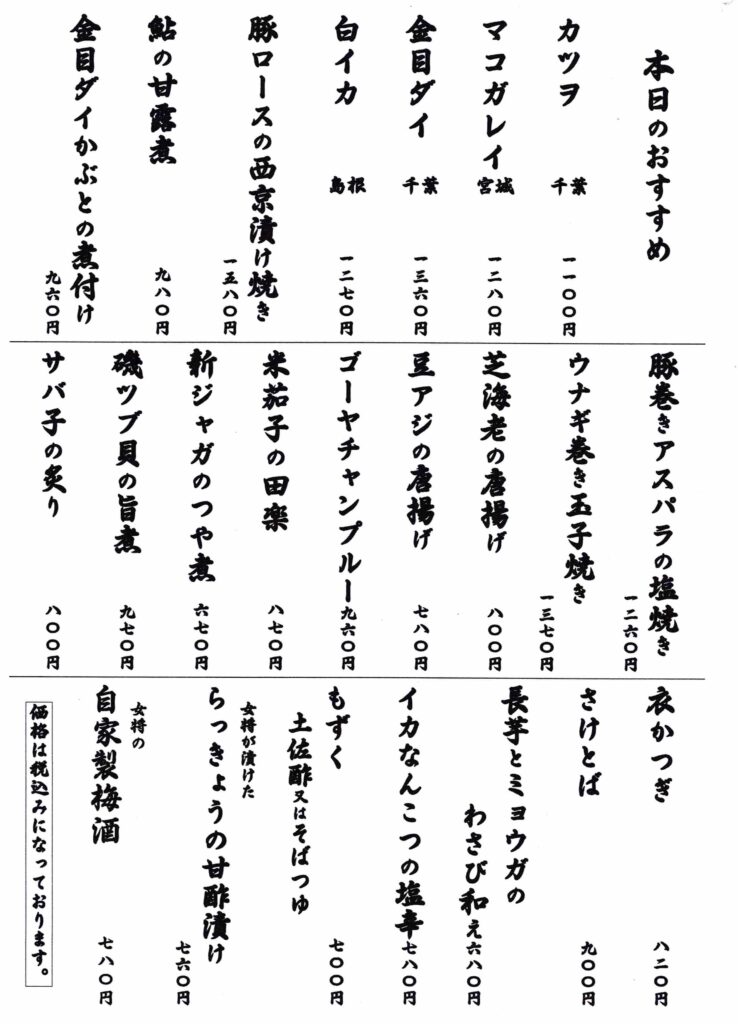 本日のおすすめ
カツヲ 千葉 一一〇〇円
マコガレイ 宮城 一二八〇円
金目ダイ 千葉 一三六〇円
白イカ 島根 一二七〇円
豚ロースの西京漬け焼き 一五八〇円
鮎の甘露煮 九八〇円
金目ダイかぶとの煮付け 九六〇円
豚巻きアスパラの塩焼き 一二六〇円
ウナギ巻き玉子焼き 一三七〇円
芝海老の唐揚げ 八〇〇円
豆アジの唐揚げ 七八〇円
ゴーヤチャンプルー 九六〇円
米茄子の田楽 八七〇円
新ジャガのつや煮 六七〇円
磯ツブ貝の旨煮 九七〇円
サバ子の炙り 八〇〇円
衣かつぎ 八二〇円
さけとば 九〇〇円
長芋とミョウガの
わさび和え 六八〇円
イカなんこつの塩辛 七八〇円
もずく 七〇〇円
土佐酢又はそばつゆ
女将が漬けた
らっきょうの甘酢漬け 七六〇円
女将の
自家製梅酒 七八〇円
価格は税込みになっております。